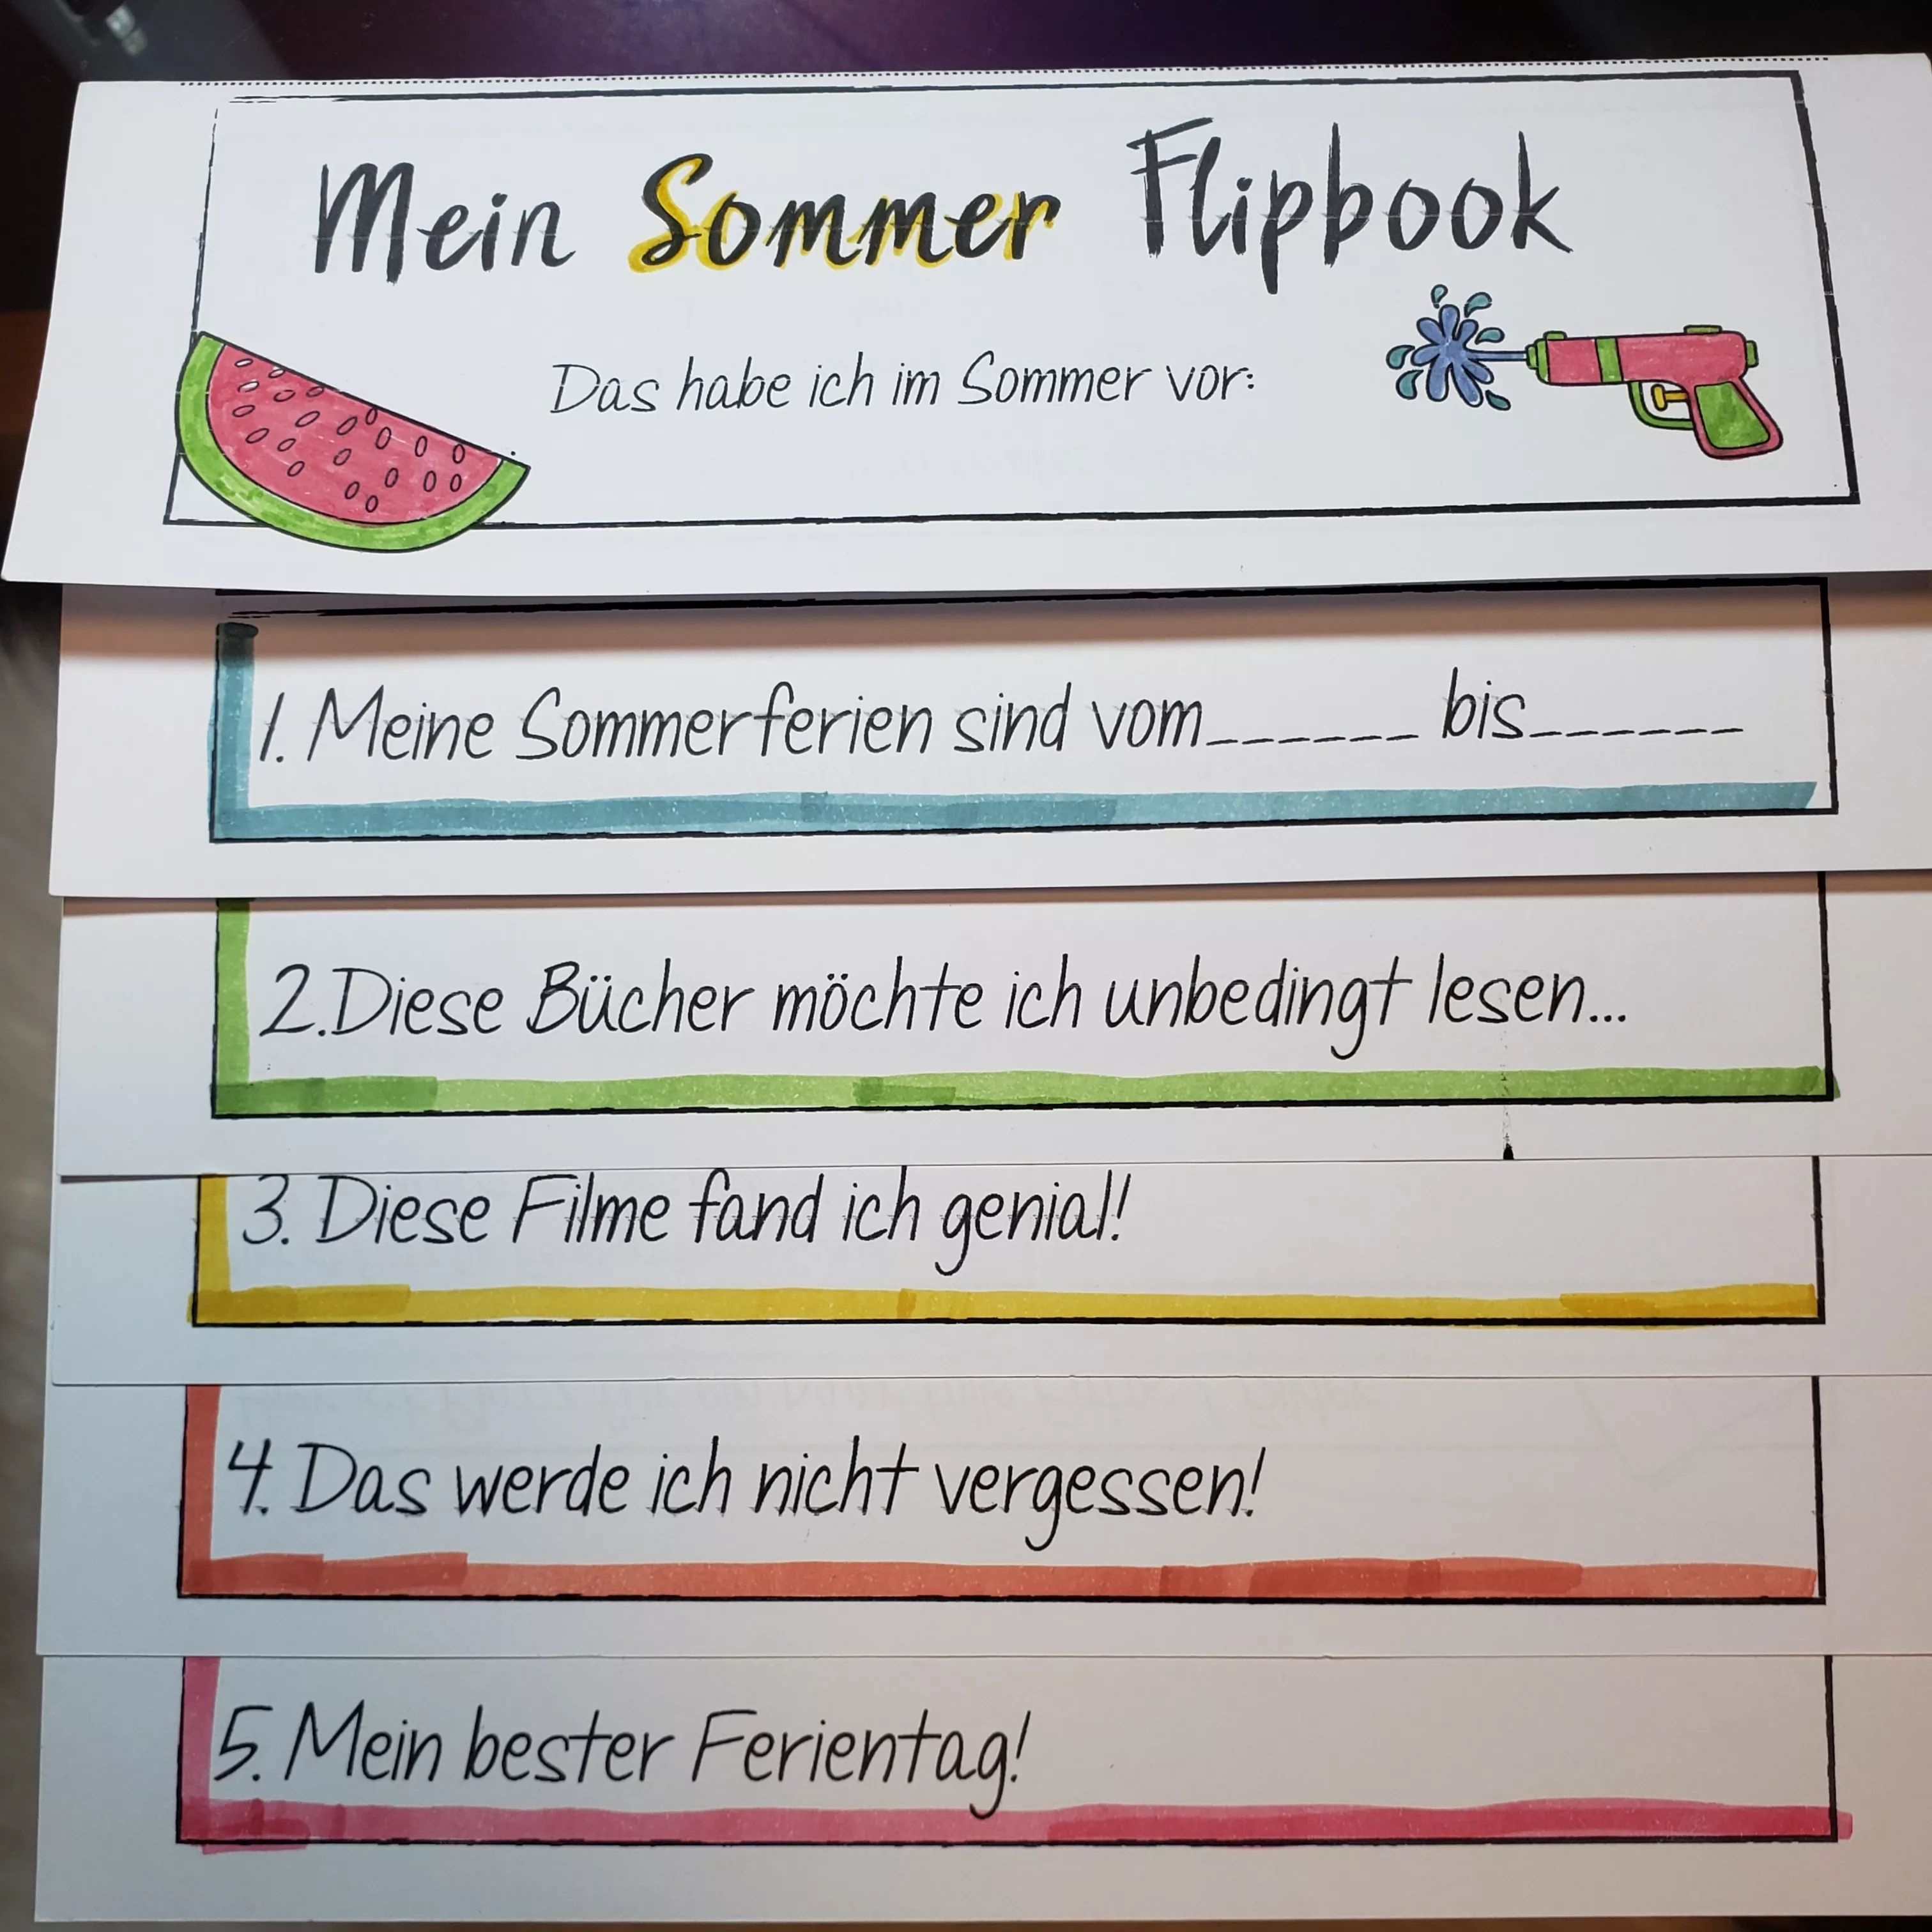 Mein Sommer Flipbook
Das habe ich im Sommer vor:
1. Meine Sommerferien sind vom______ bis______
2.Diese Bücher möchte ich unbedingt lesen...
3. Diese Filme fand ich genial!
4. Das werde ich nicht vergessen!
5. Mein bester Ferientag!